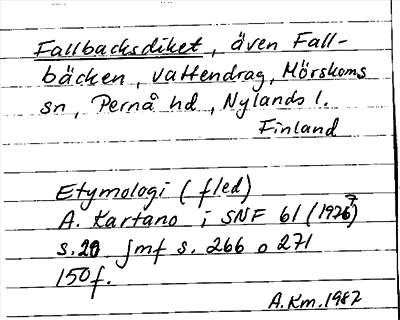 Fallbacksdiket, även Fall-
bäcken, vattendrag, Mörskoms
sn, Pernå hd, Nylands l.
Finland
Etymologi (fled)
A. Kartano i SNF 61 (1976)
s. 20 jmf s. 266 o 271
150 f.
A.Km.1987